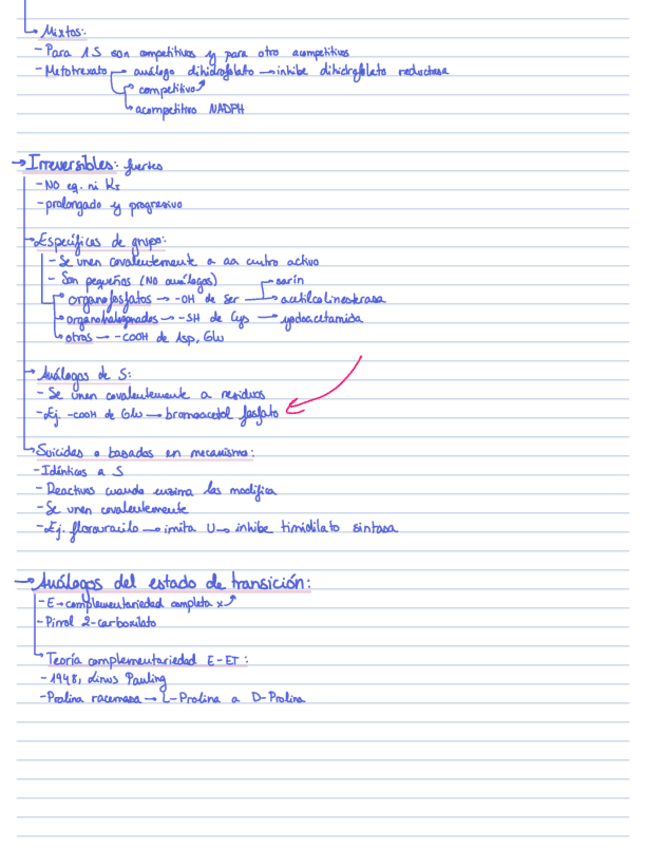 Mixtos:
- Para 1 S son competitivos y para otro acompetitivos
- Metotrexato → análogo dihidrofolato → inhibe dihidrofolato reductasa
→ competitivo
→ acompetitivo NADPH
→ Irreversibles: fuertes
- NO eq. ni KI
- prolongado y progresivo
→ Específicas de grupo:
- Se unen covalentemente a aa centro activo
- Son pequeños (NO análogos) → sarín
→ organofosfatos → -OH de Ser → acetilcolinesterasa
→ organohalogenados → -SH de Cys → yodoacetamida
→ otros → -COOH de Asp, Glu
→ Análogos de S:
- Se unen covalentemente a residuos
- Ej. -COOH de Glu → bromoacetol fosfato
→ Suicidas o basados en mecanismo:
- Idénticos a S
- Reactivos cuando enzima los modifica
- Se unen covalentemente
- Ej. floruracilo → imita U → inhibe timidilato sintasa
→ Análogos del estado de transición:
- E → complementariedad completa x
- Pirrol 2-carboxilato
→ Teoría complementariedad E-ET:
- 1948, Linus Pauling
- Prolina racemasa → L-Prolina a D-Prolina